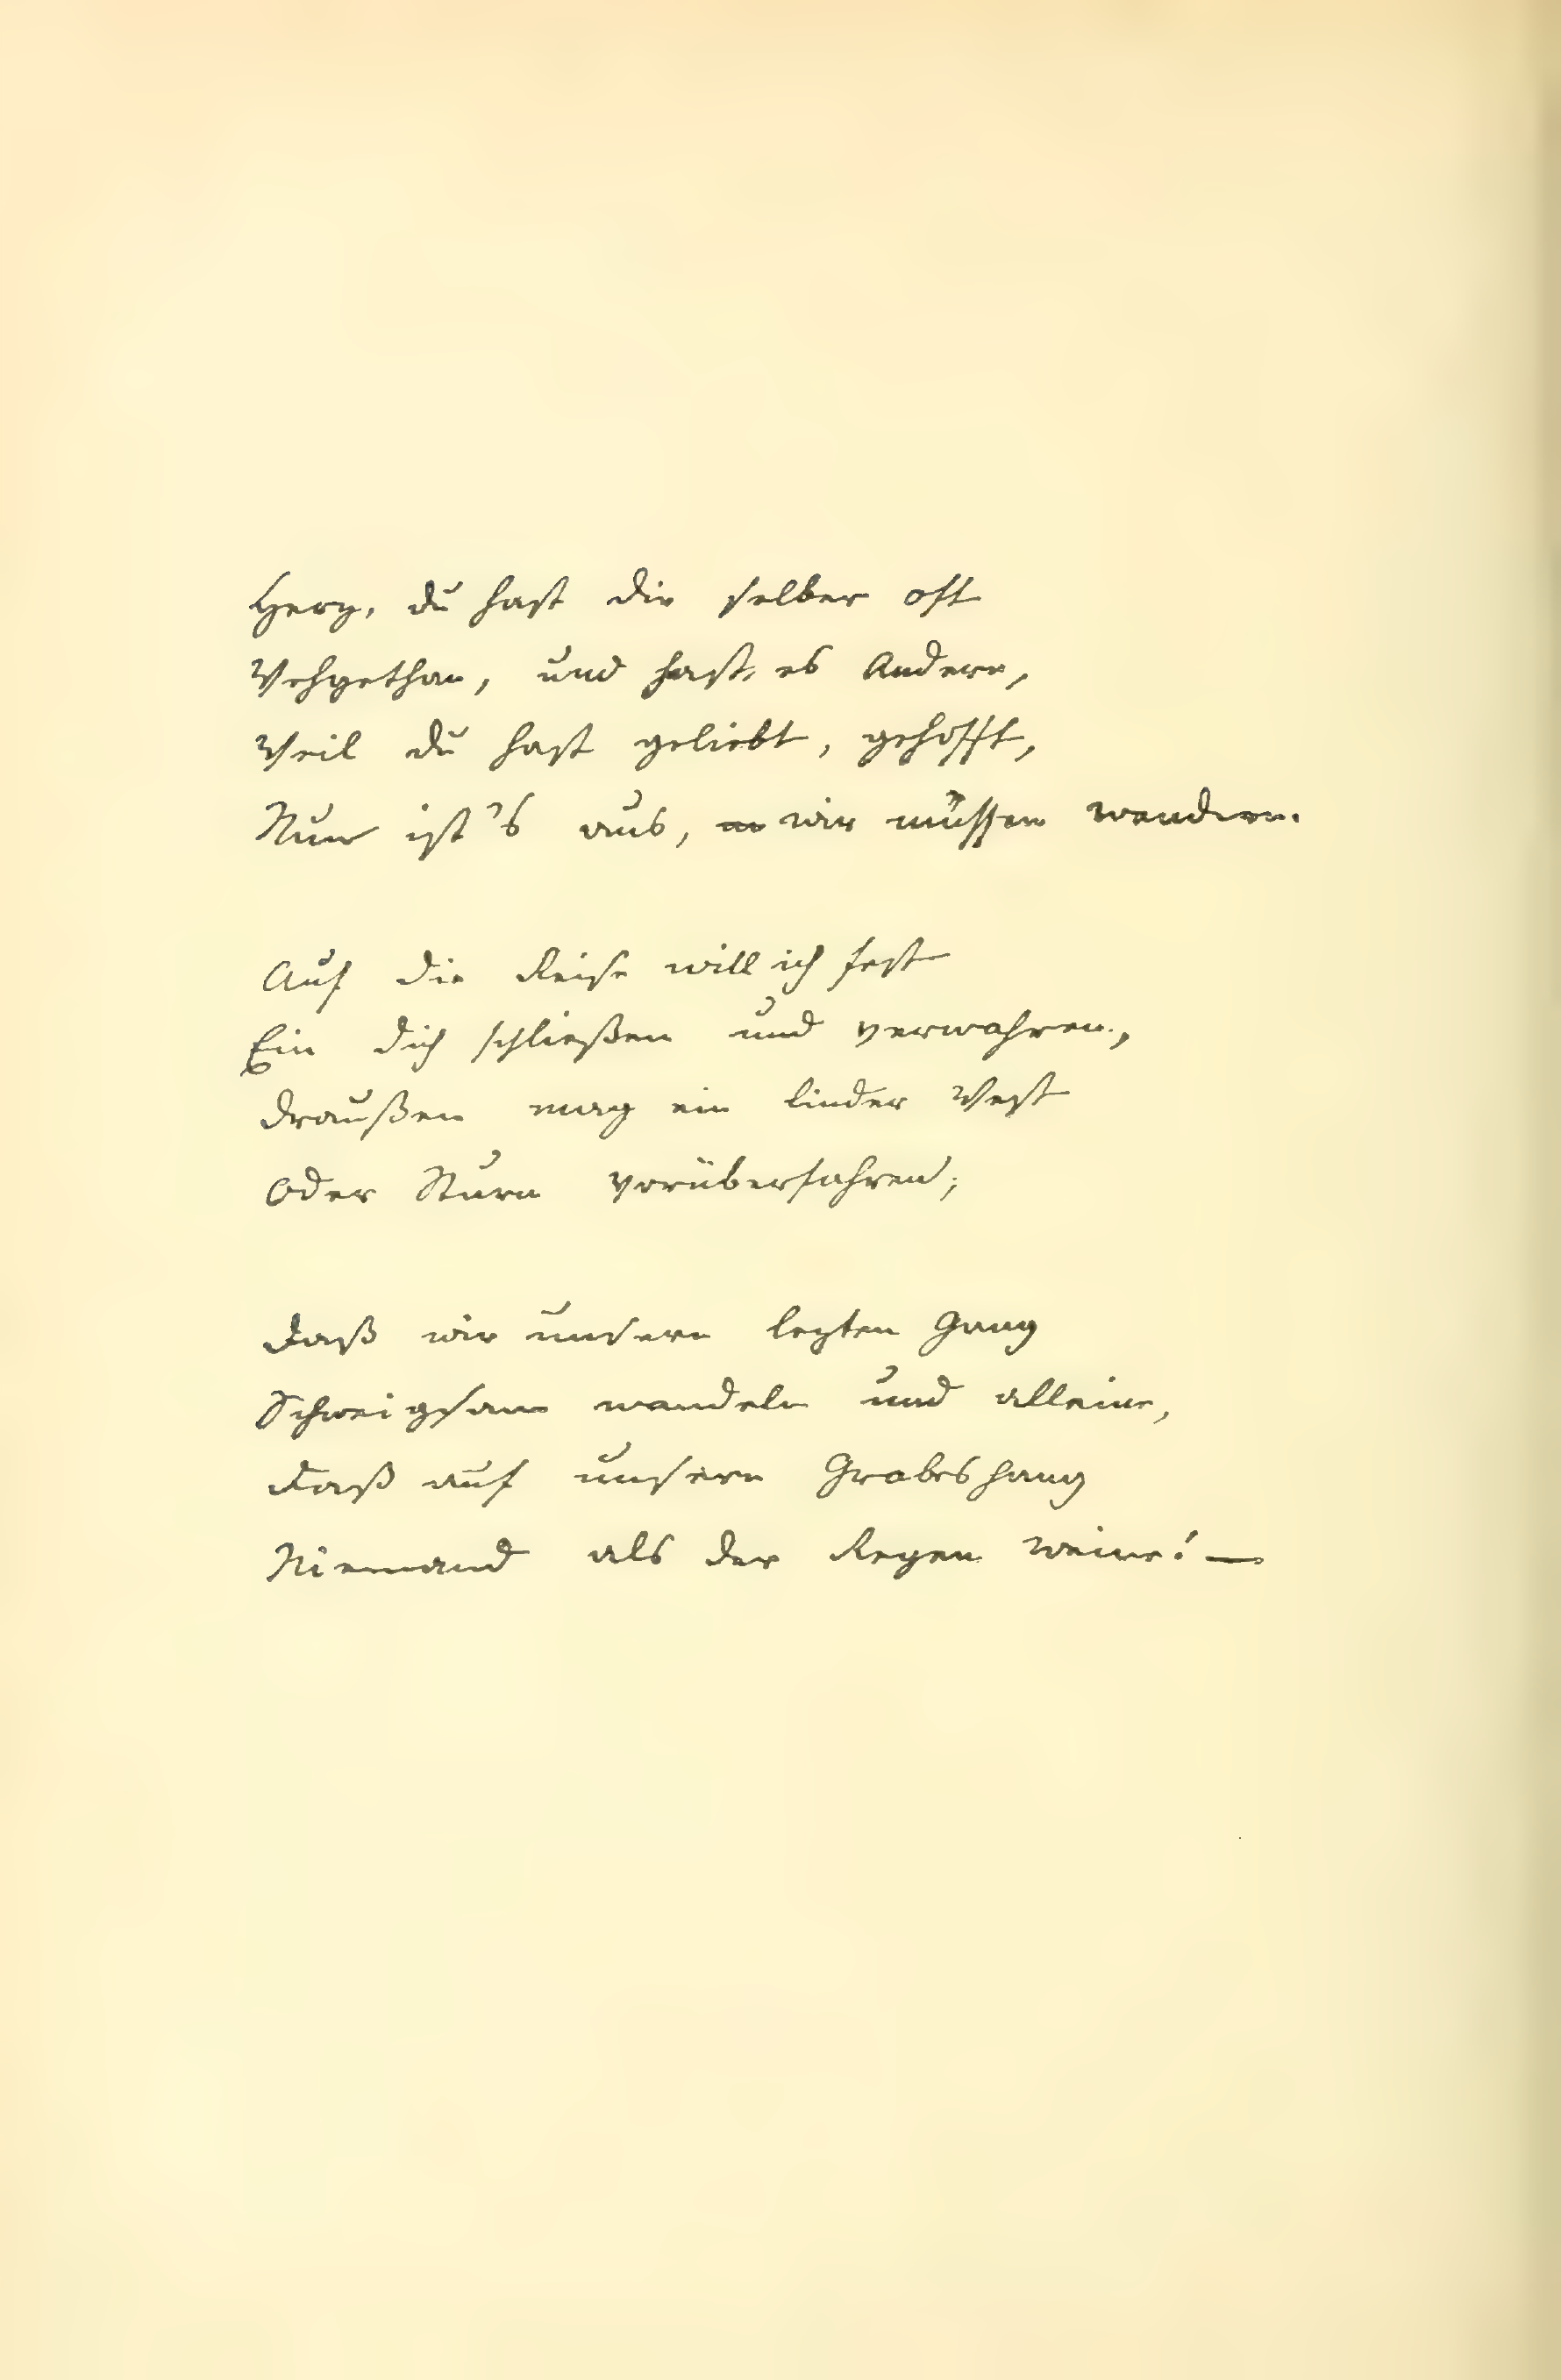 Herz, du hast dir selber oft
Wehgethan, und hast es Andern,
Weil du hast geliebt, gehofft,
Nun ist's aus, wir müssen wandern.
Auf die Reise will ich fest
Ein dich schließen und verwahren,
Draußen mag ein linder West
Oder Sturm vorüberfahren;
Daß wir unsern letzten Gang
Schweigsam wandeln und alleine,
Daß auf unsern Grabeshang
Niemand als der Regen weine! —